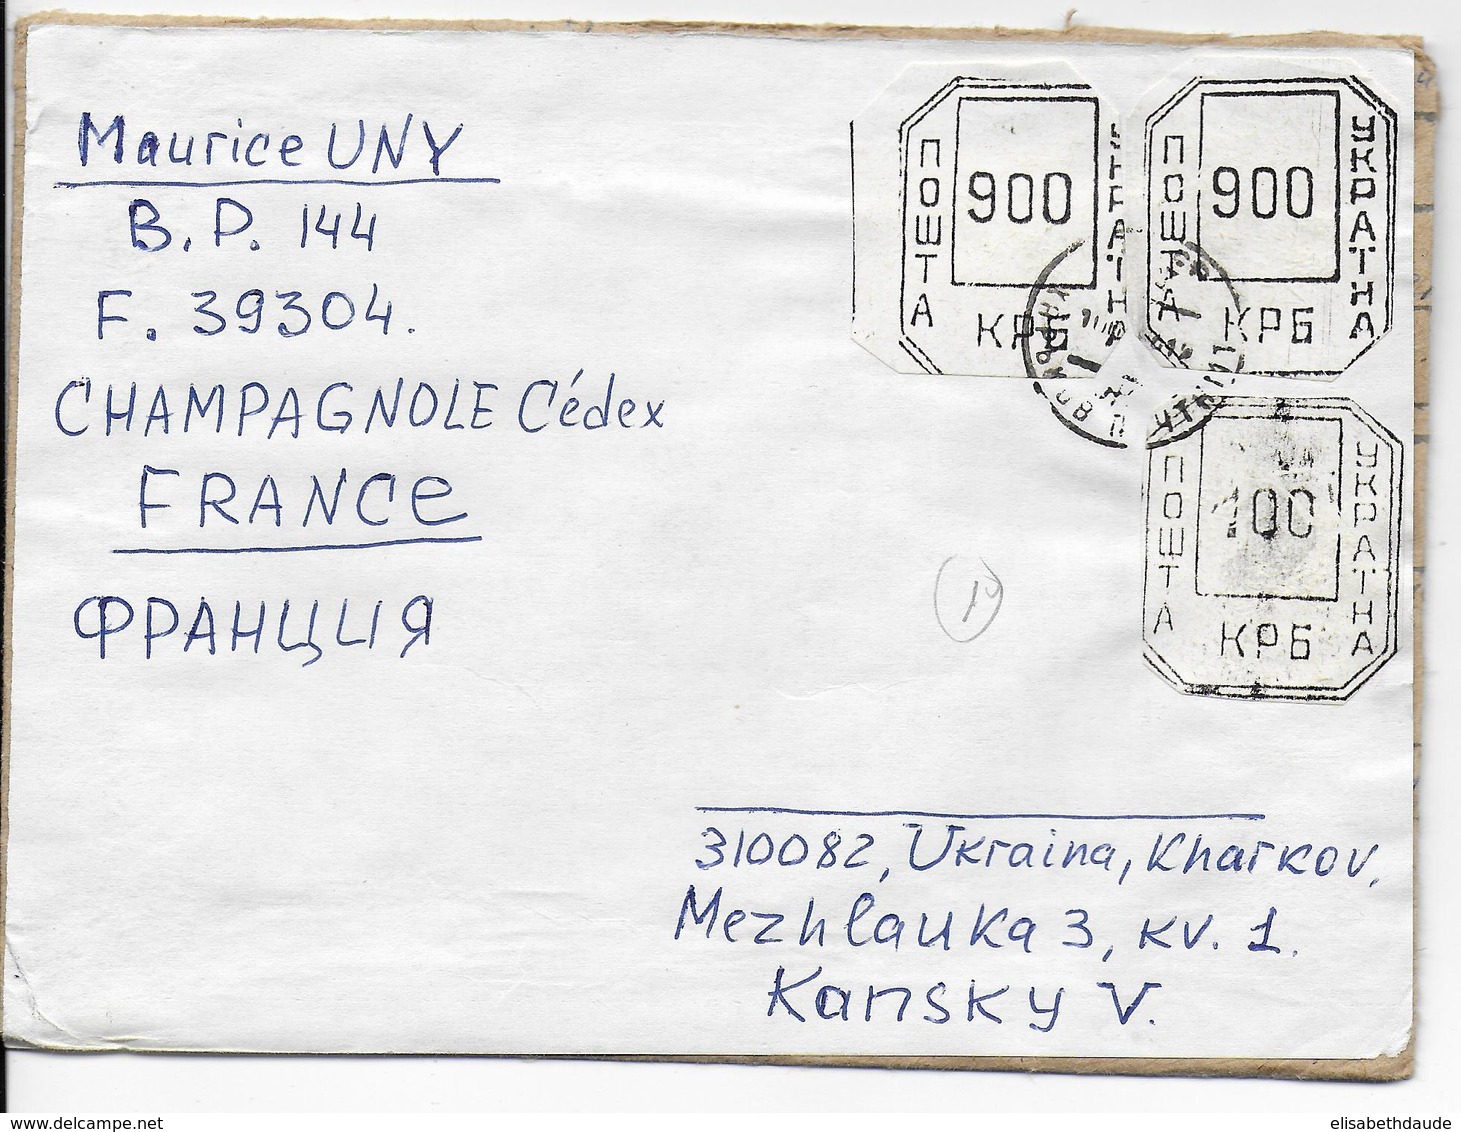 Maurice UNY
B.P. 144
F. 39304.
CHAMPAGNOLE Cédex
FRANCE
ФРАНЦИЯ
ПОШТА
900
УКРАЇНА
КРБ
ПОШТА
900
УКРАЇНА
КРБ
ПОШТА
100
УКРАЇНА
КРБ
310082, Ukraina, Kharkov,
Mezhlauka 3, kv. 1.
Kansky V.
elisabethdaude